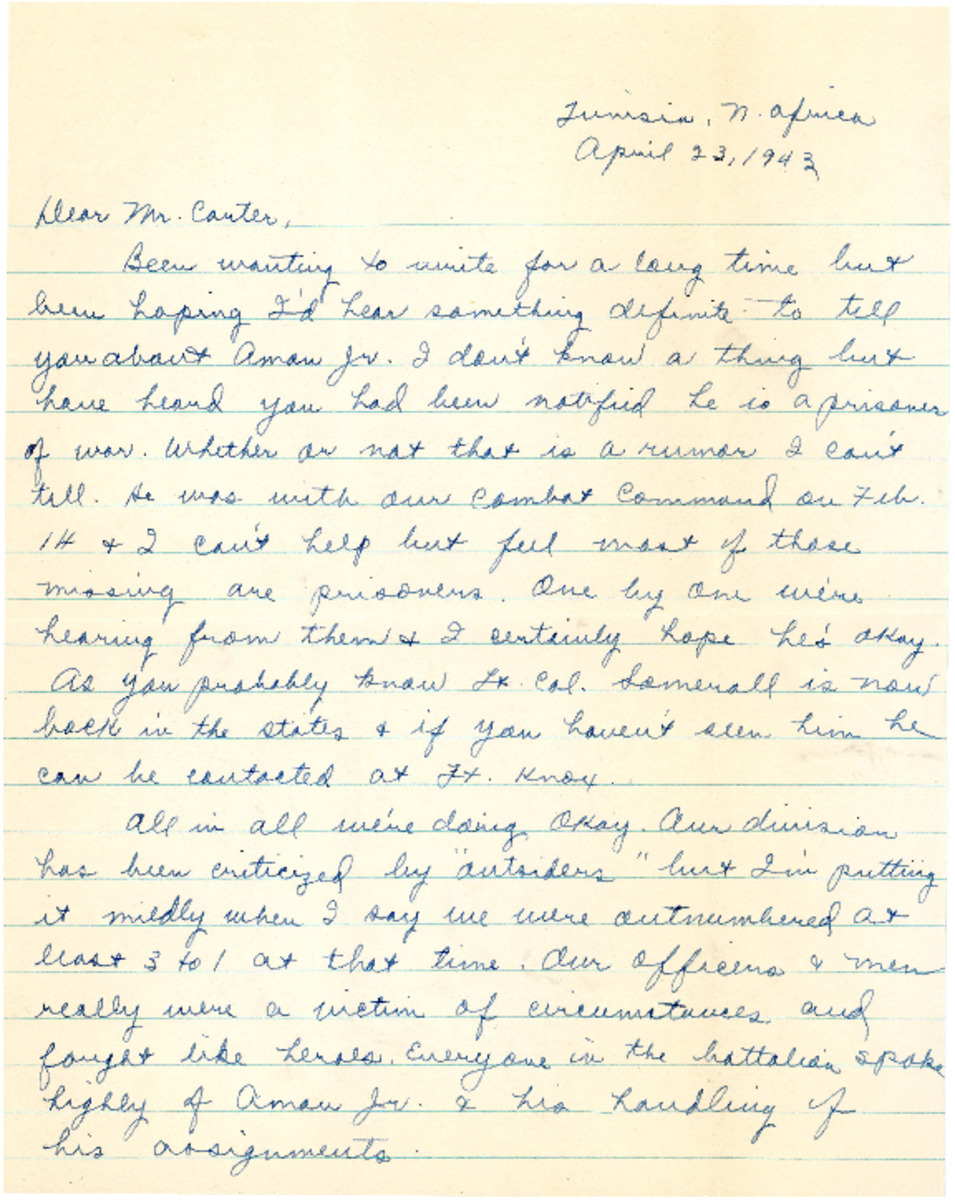 Tunisia, N. Africa
April 23, 1943
Dear Mr. Carter,
Been wanting to write for a long time but
been hoping I'd hear something definite to tell
you about Amon Jr. I don't know a thing but
have heard you had been notified he is a prisoner
of war. Whether or not that is a rumor I can't
tell. He was with our Combat Command on Feb.
14 & I can't help but feel most of those
missing are prisoners. One by one we're
hearing from them & I certainly hope he's okay.
As you probably know Lt. Col. Somerall is now
back in the states & if you haven't seen him he
can be contacted at Ft. Knox.
All in all we're doing okay. Our division
has been criticized by "outsiders" but I'm putting
it mildly when I say we were outnumbered at
least 3 to 1 at that time. Our officers & men
really were a victim of circumstances and
fought like heroes. Everyone in the battalion spoke
highly of Amon Jr. & his handling of
his assignments.